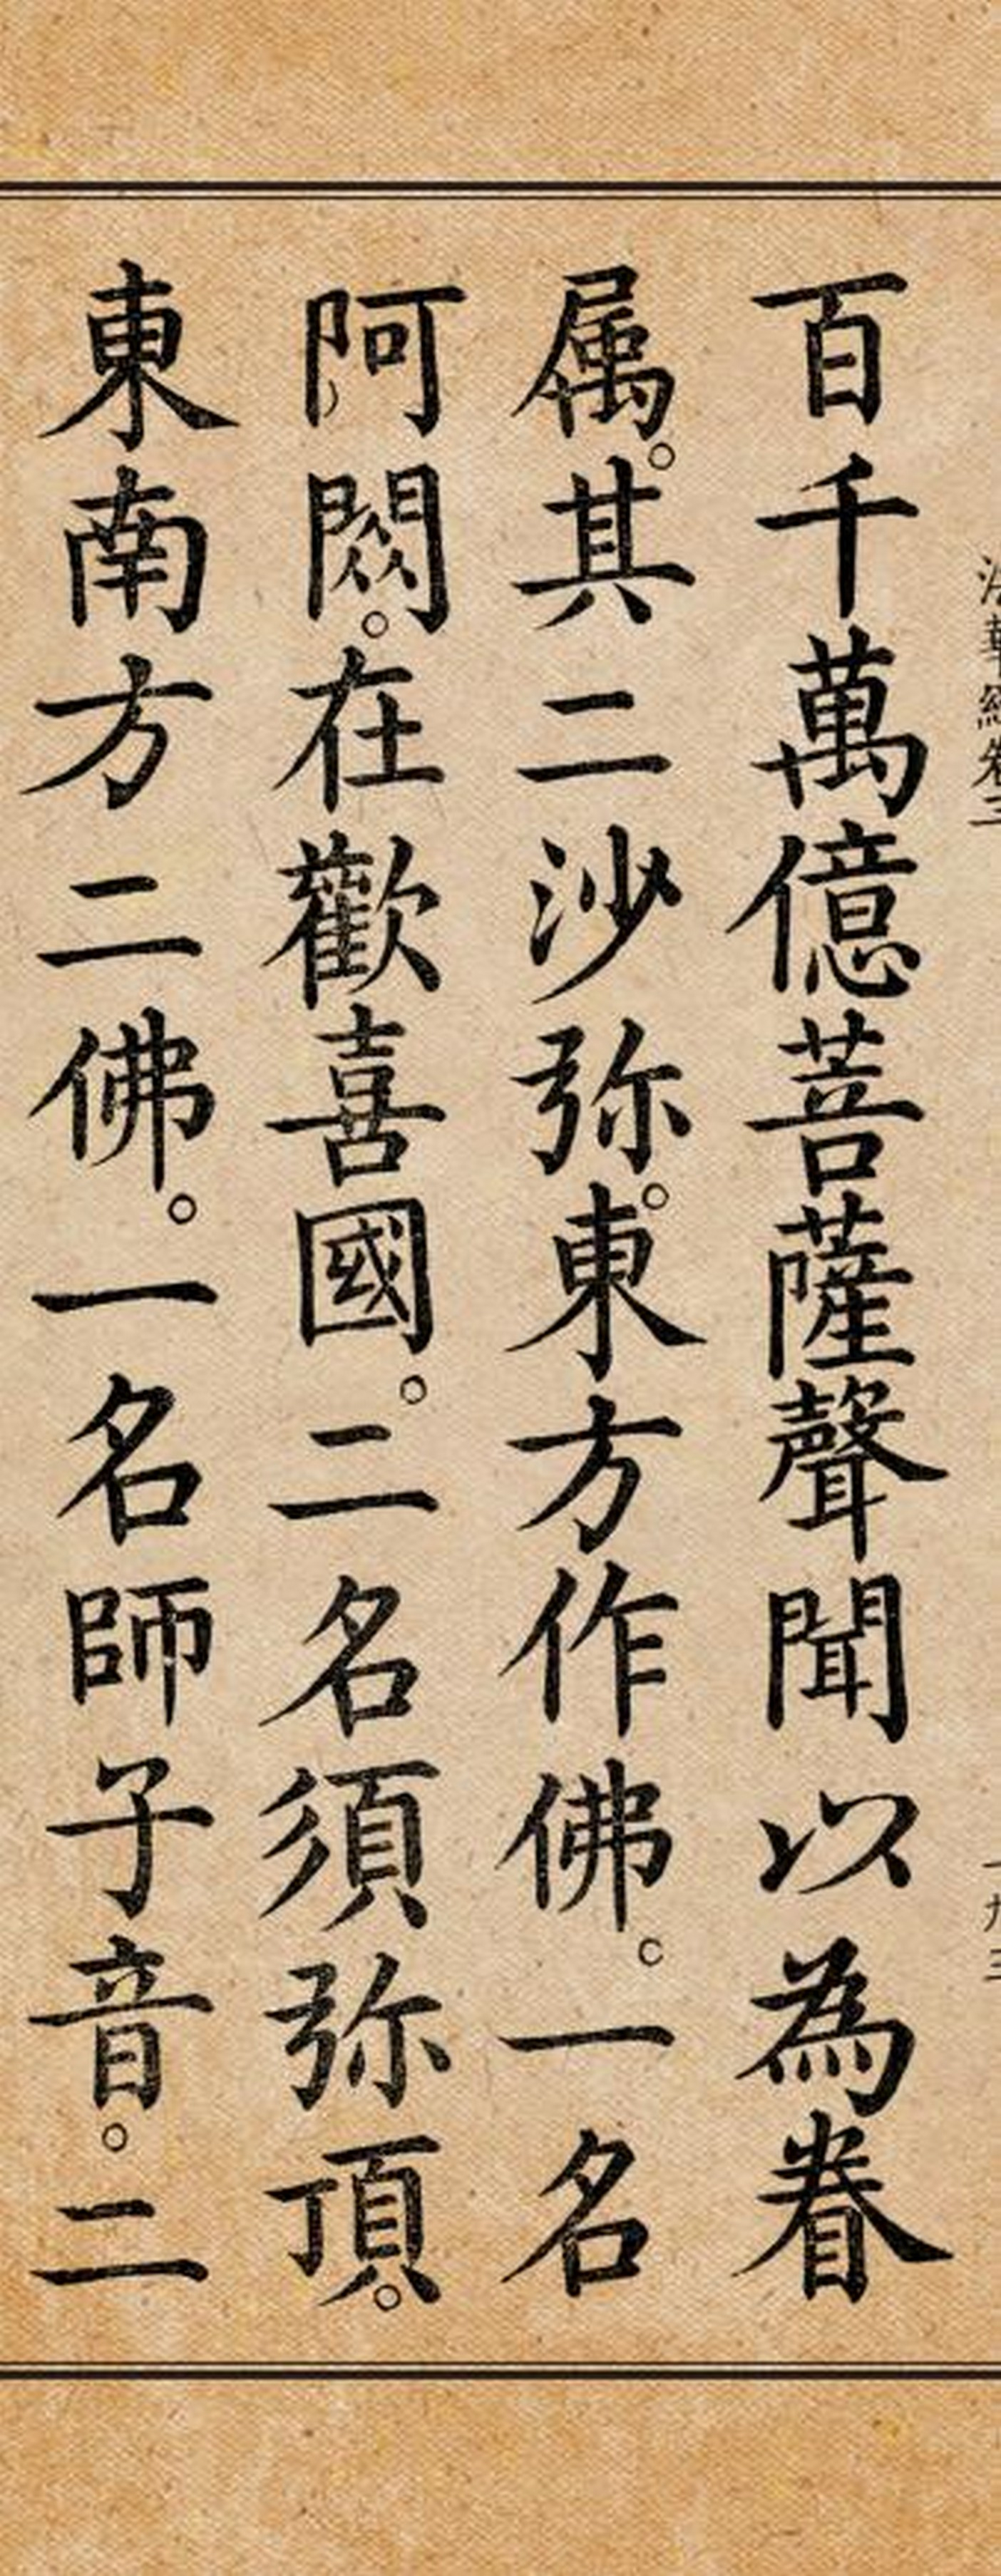 法華經卷三
一九三
百千萬億菩薩聲聞以為眷
属。其二沙弥。東方作佛。一名
阿閦。在歡喜國。二名須弥頂。
東南方二佛。一名師子音。二